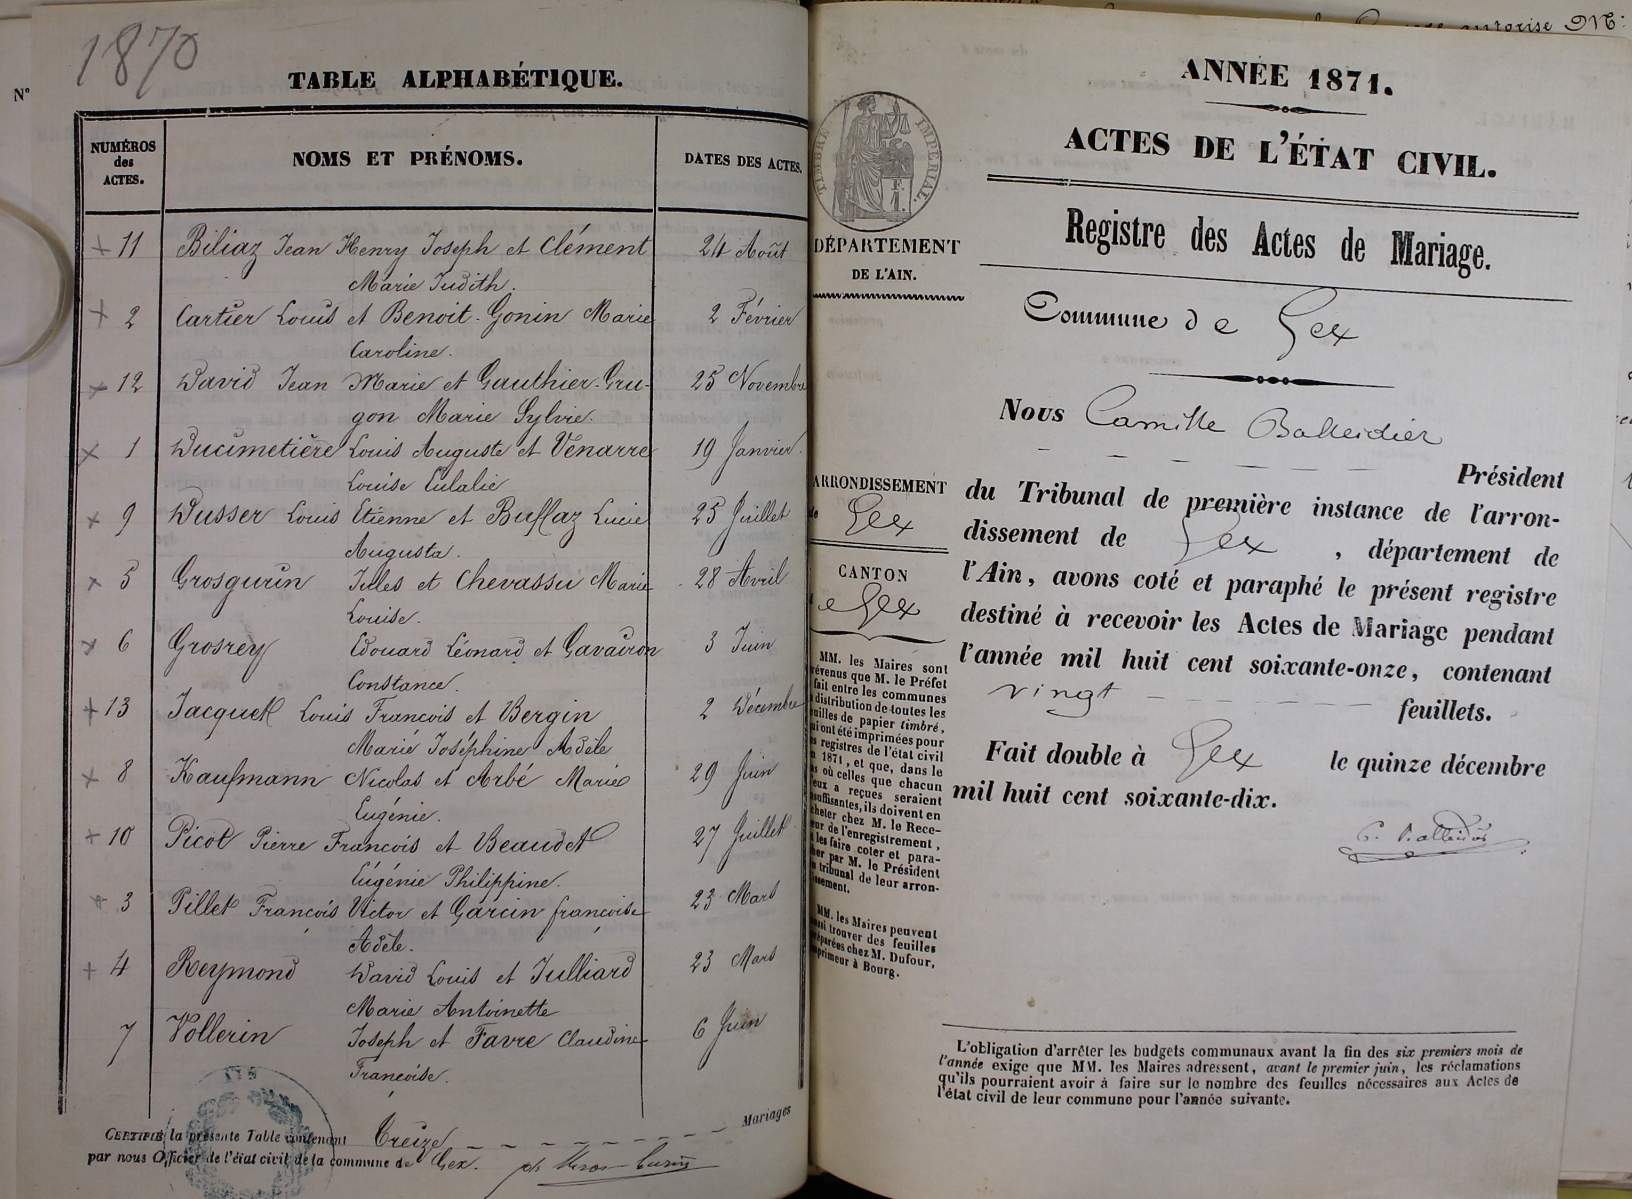 1870
N°
TABLE ALPHABÉTIQUE.
NUMÉROS des ACTES. NOMS ET PRÉNOMS. DATES DES ACTES.
+ 11 Biliaz Jean Henry Joseph et Clément 24 Août
Marie Judith.
+ 2 Cartier Louis et Benoit-Gonin Marie 2 Février
Caroline.
+ 12 David Jean Marie et Gauthier-Gru- 25 Novembre
gon Marie Sylvie.
x 1 Ducimetière Louis Auguste et Venarre 19 Janvier
Louise Eulalie
x 9 Dusser Louis Etienne et Buffaz Lucie 25 Juillet
Augusta.
x 5 Grosgurin Jules et Chevassu Marie 28 Avril
Louise.
x 6 Grosrey Edouard Léonard et Gavairon 3 Juin
Constance.
+ 13 Jacquet Louis François et Bergin 2 Décembre
Marie Joséphine Adèle
x 8 Kaufmann Nicolas et Arbé Marie 29 Juin
Eugénie.
+ 10 Picot Pierre François et Beaudet 27 Juillet
Eugénie Philippine.
+ 3 Pillet François Victor et Garcin françoise 23 Mars
Adèle.
+ 4 Reymond David Louis et Julliard 23 Mars
Marie Antoinette
7 Vollerin Joseph et Favre Claudine 6 Juin
Françoise.
CERTIFIÉ la présente Table contenant Treize Mariages
par nous Officier de l'état civil de la commune de Gex.
ANNÉE 1871.
ACTES DE L'ÉTAT CIVIL.
TIMBRE IMPÉRIAL.
F.
1.
DÉPARTEMENT
DE L'AIN.
Registre des Actes de Mariage.
Commune de Gex
Nous Camille Balleidier
Président
ARRONDISSEMENT
de Gex
CANTON
de Gex
du Tribunal de première instance de l'arron-
dissement de Gex, département de
l'Ain, avons coté et paraphé le présent registre
destiné à recevoir les Actes de Mariage pendant
l'année mil huit cent soixante-onze, contenant
vingt feuillets.
Fait double à Gex le quinze décembre
mil huit cent soixante-dix.
C. Balleidier
MM. les Maires sont
prévenus que M. le Préfet
fait entre les communes
distribution de toutes les
feuilles de papier timbré,
qui ont été imprimées pour
les registres de l'état civil
1871, et que, dans le
cas où celles que chacun
d'eux a reçues seraient
insuffisantes, ils doivent en
acheter chez M. le Rece-
veur de l'enregistrement,
les faire coter et para-
pher par M. le Président
du tribunal de leur arron-
dissement.
MM. les Maires peuvent
aussi trouver des feuilles
préparées chez M. Dufour,
imprimeur à Bourg.
L'obligation d'arrêter les budgets communaux avant la fin des six premiers mois de
l'année exige que MM. les Maires adressent, avant le premier juin, les réclamations
qu'ils pourraient avoir à faire sur le nombre des feuilles nécessaires aux Actes de
l'état civil de leur commune pour l'année suivante.